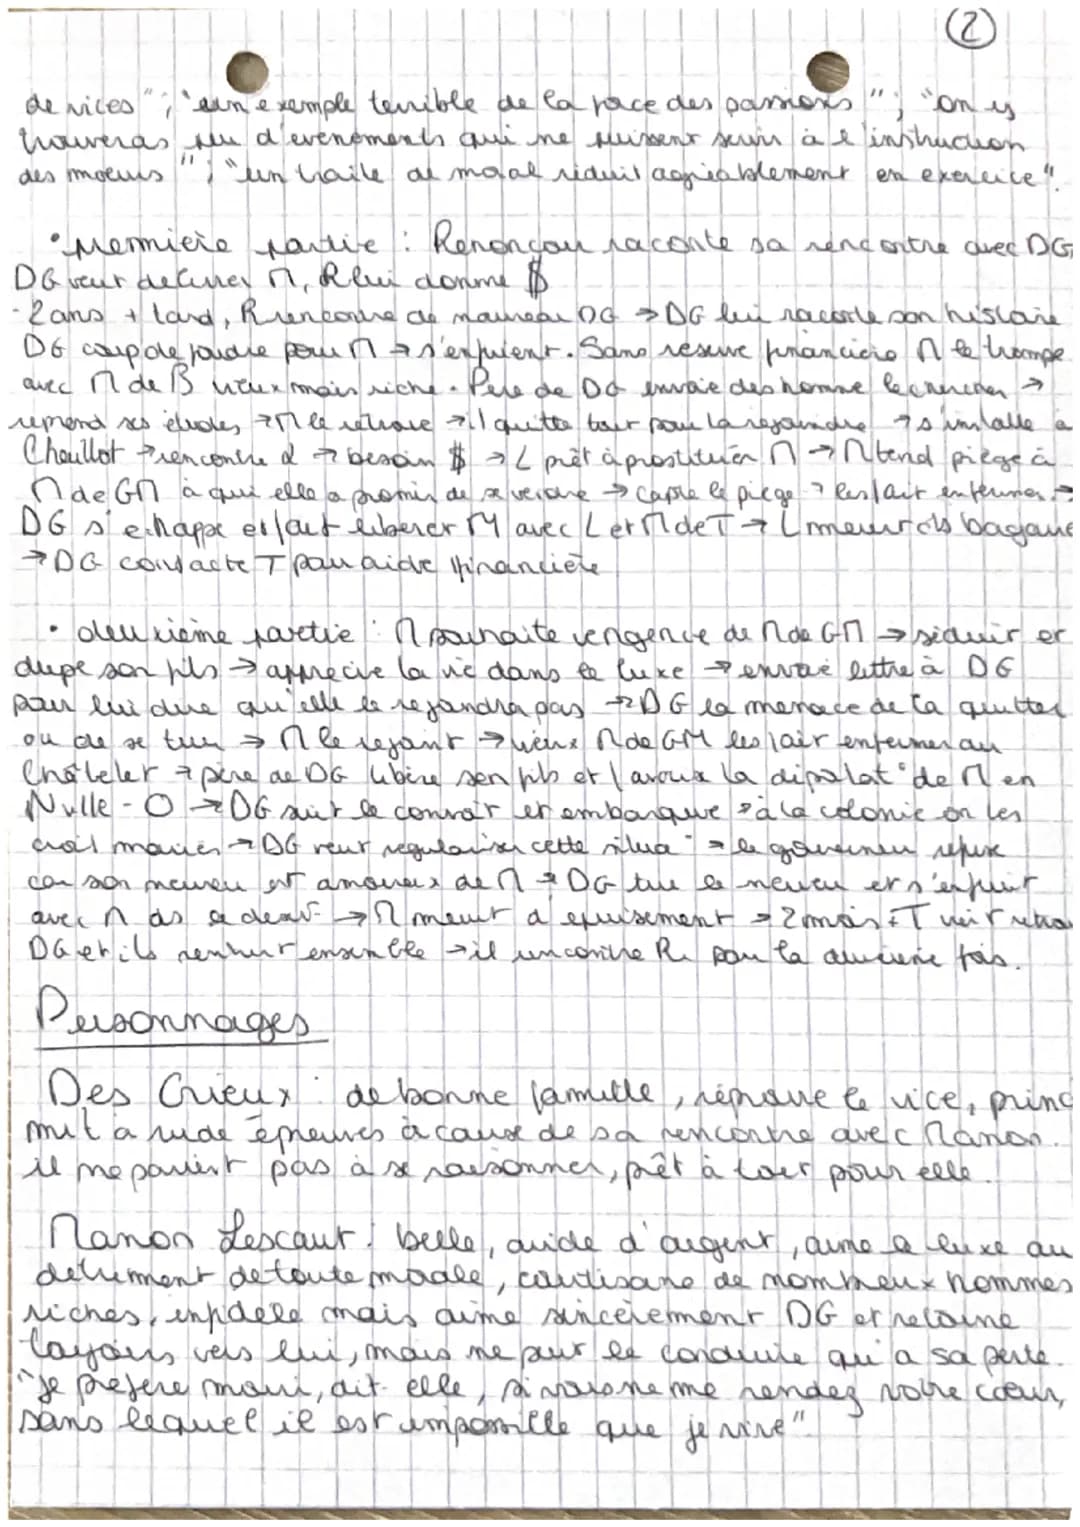 2
de vices" ; "un exemple terrible de la force des passions" ; "on y
trouveras peu d'evenements qui ne puissent servir à l'instruction
des moeurs" ; "un traite de moral réduit agréablement en exercice".
• première partie : Renoncour raconte sa rencontre avec DG,
DG veut delivrer M, R lui donne $
- 2 ans + tard, R rencontre de nouveau DG → DG lui raconte son histoire
DG coup de foudre pour M → s'enfuient. Sans reserve financière M le trompe
avec M de B vieux mais riche. Pere de DG envoie des homme le chercher →
reprend ses études → M le retrouve → il quitte tout pour la rejoindre → s'installe à
Chaillot → rencontre L → besoin $ → L prêt à prostituer M → M tend piège à
M de GM à qui elle a promis de se vendre → capte le piege → les fait enfermer →
DG s'echappe et fait liberer M avec L et M de T → L meurt ds bagarre
→ DG contacte T pour aide financière
• deuxième partie : M souhaite vengence de M de GM → séduir et
dupe son fils → apprecie la vie dans le luxe → envoie lettre à DG
pour lui dire qu'elle le rejoindra pas → DG la menace de la quitter
ou de se tuer → M le rejoint → vieux M de GM les fait enfermer au
Châtelet → père de DG libère son fils et favorise la déportat° de M en
Nvlle-O → DG suit le convoi et embarque → à la colonie on les
croit mariés → DG veut régulariser cette situa° → le gouverneur refuse
car son neveu est amoureux de M → DG tue le neveu et s'enfuit
avec M ds le desert → M meurt d'épuisement → 2 mois + T vient retrou
DG et ils rentrent ensemble → il rencontre R pour la deuxieme fois.
Personnages
Des Grieux : de bonne famille, réprouve le vice, princ
mis à rude épreuves à cause de sa rencontre avec Manon.
il ne parvient pas à se raisonner, prêt à tout pour elle.
Manon Lescaut : belle, avide d'argent, aime le luxe au
detriment de toute morale, courtisane de nombreux hommes
riches, infidèle mais aime sincèrement DG et retourne
toujours vers lui, mais ne peut le conduire qu'a sa perte.
"je préfere mourir, dit-elle, si vous ne me rendez votre coeur,
sans lequel il est impossible que je vive"